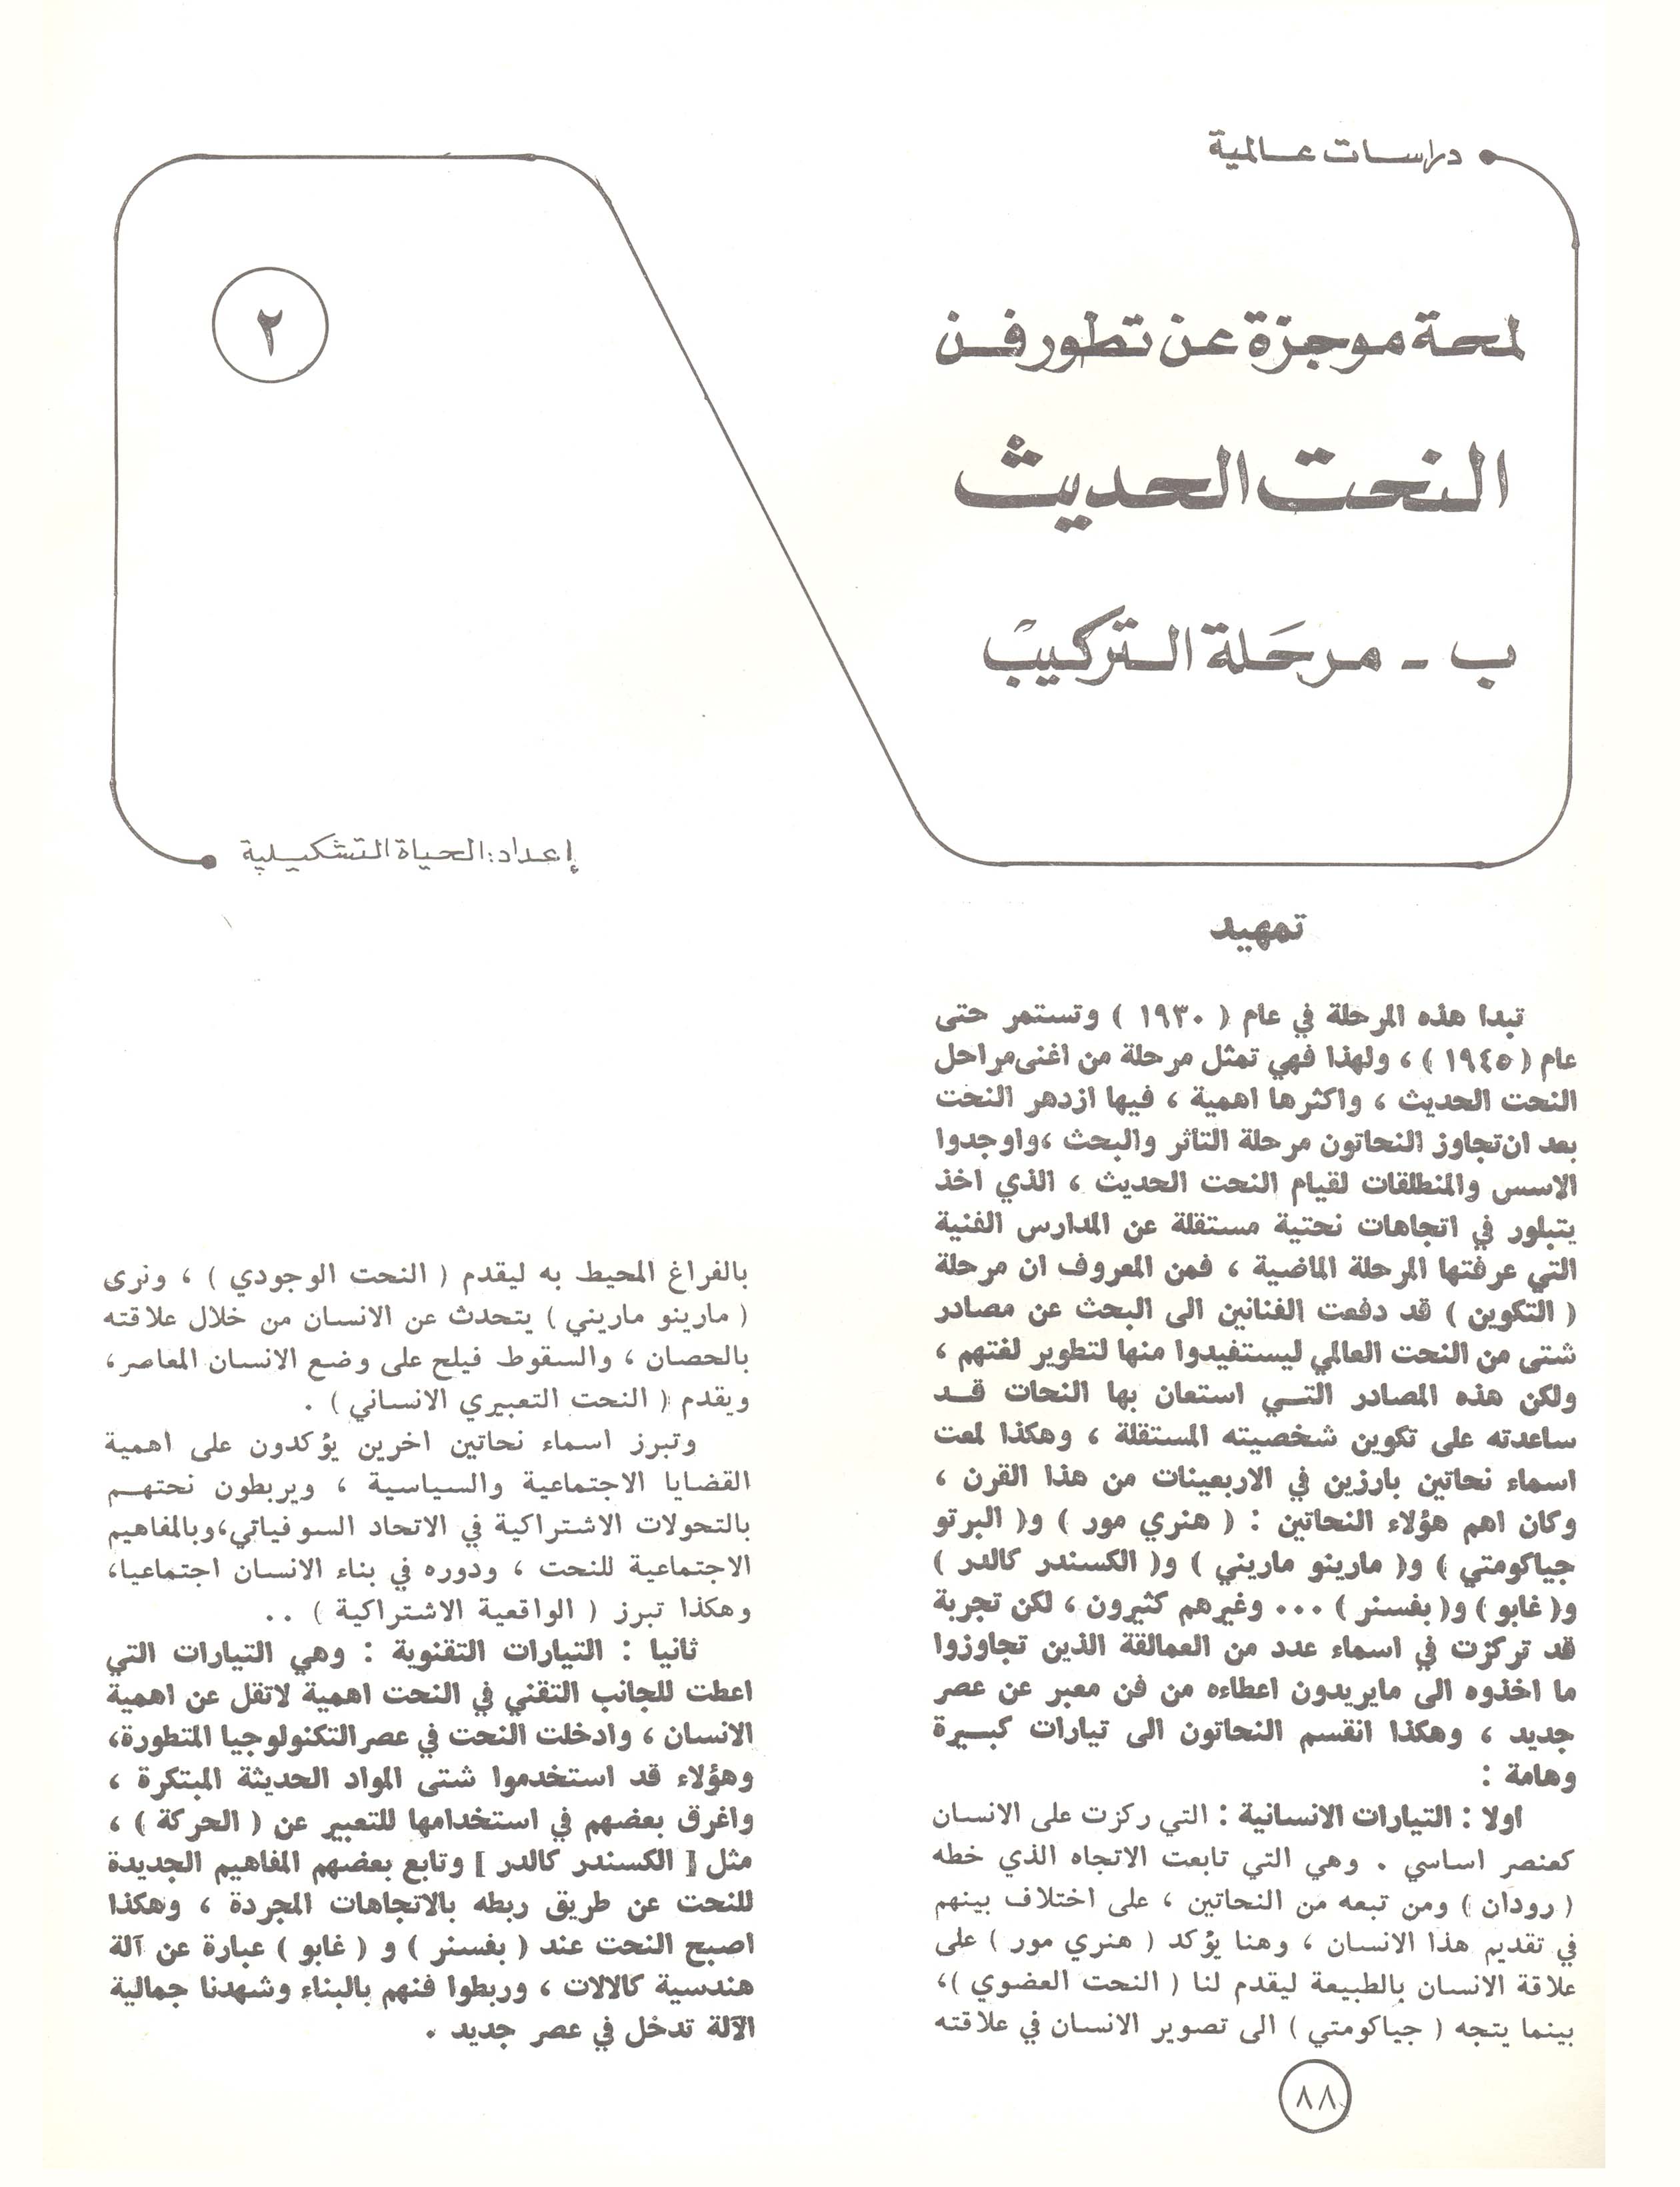 دراسات عالمية
لمحة موجزة عن تطور فن
النحت الحديث
ب - مرحلة التركيب
٢
إعداد: الحياة التشكيلية
تمهيد
تبدا هذه المرحلة في عام ( ١٩٣٠ ) وتستمر حتى
عام ( ١٩٤٥ ) ، ولهذا فهي تمثل مرحلة من اغنى مراحل
النحت الحديث ، واكثرها اهمية ، فيها ازدهر النحت
بعد ان تجاوز النحاتون مرحلة التأثر والبحث ، واوجدوا
الاسس والمنطلقات لقيام النحت الحديث ، الذي اخذ
يتبلور في اتجاهات نحتية مستقلة عن المدارس الفنية
التي عرفتها المرحلة الماضية ، فمن المعروف ان مرحلة
( التكوين ) قد دفعت الفنانين الى البحث عن مصادر
شتى من النحت العالمي ليستفيدوا منها لتطوير لغتهم ،
ولكن هذه المصادر التـي استعان بها النحات قـد
ساعدته على تكوين شخصيته المستقلة ، وهكذا لمعت
اسماء نحاتين بارزين في الاربعينات من هذا القرن ،
وكان اهم هؤلاء النحاتين : ( هنري مور ) و( البرتو
جياكومتي ) و( مارينو ماريني ) و( الكسندر كالدر )
و( غابو ) و( بفسنر ) ... وغيرهم كثيرون ، لكن تجربة
قد تركزت في اسماء عدد من العمالقة الذين تجاوزوا
ما اخذوه الى مايريدون اعطاءه من فن معبر عن عصر
جديد ، وهكذا انقسم النحاتون الى تيارات كبـيرة
وهامة :
اولا : التيارات الانسانية : التي ركزت على الانسان
كعنصر اساسي . وهي التي تابعت الاتجاه الذي خطه
( رودان ) ومن تبعه من النحاتين ، على اختلاف بينهم
في تقديم هذا الانسان ، وهنا يؤكد ( هنري مور ) على
علاقة الانسان بالطبيعة ليقدم لنا ( النحت العضوي )،
بينما يتجه ( جياكومتي ) الى تصوير الانسان في علاقته
بالفراغ المحيط به ليقدم ( النحت الوجودي ) ، ونرى
( مارينو ماريني ) يتحدث عن الانسان من خلال علاقته
بالحصان ، والسقوط فيلح على وضع الانسان المعاصر،
ويقدم ( النحت التعبيري الانساني ) .
وتبرز اسماء نحاتين اخرين يؤكدون على اهمية
القضايا الاجتماعية والسياسية ، ويربطون نحتهـم
بالتحولات الاشتراكية في الاتحاد السوفياتي،وبالمفاهيم
الاجتماعية للنحت ، ودوره في بناء الانسان اجتماعيا،
وهكذا تبرز ( الواقعية الاشتراكية ) ..
ثانيا : التيارات التقنوية : وهي التيارات التي
اعطت للجانب التقني في النحت اهمية لاتقل عن اهمية
الانسان ، وادخلت النحت في عصر التكنولوجيا المتطورة،
وهؤلاء قد استخدموا شتى المواد الحديثة المبتكرة ،
واغرق بعضهم في استخدامها للتعبير عن ( الحركة ) ،
مثل [ الكسندر كالدر ] وتابع بعضهم المفاهيم الجديدة
للنحت عن طريق ربطه بالاتجاهات المجردة ، وهكذا
اصبح النحت عند ( بفسنر ) و ( غابو ) عبارة عن آلة
هندسية كالالات ، وربطوا فنهم بالبناء وشهدنا جمالية
الآلة تدخل في عصر جديد .
٨٨